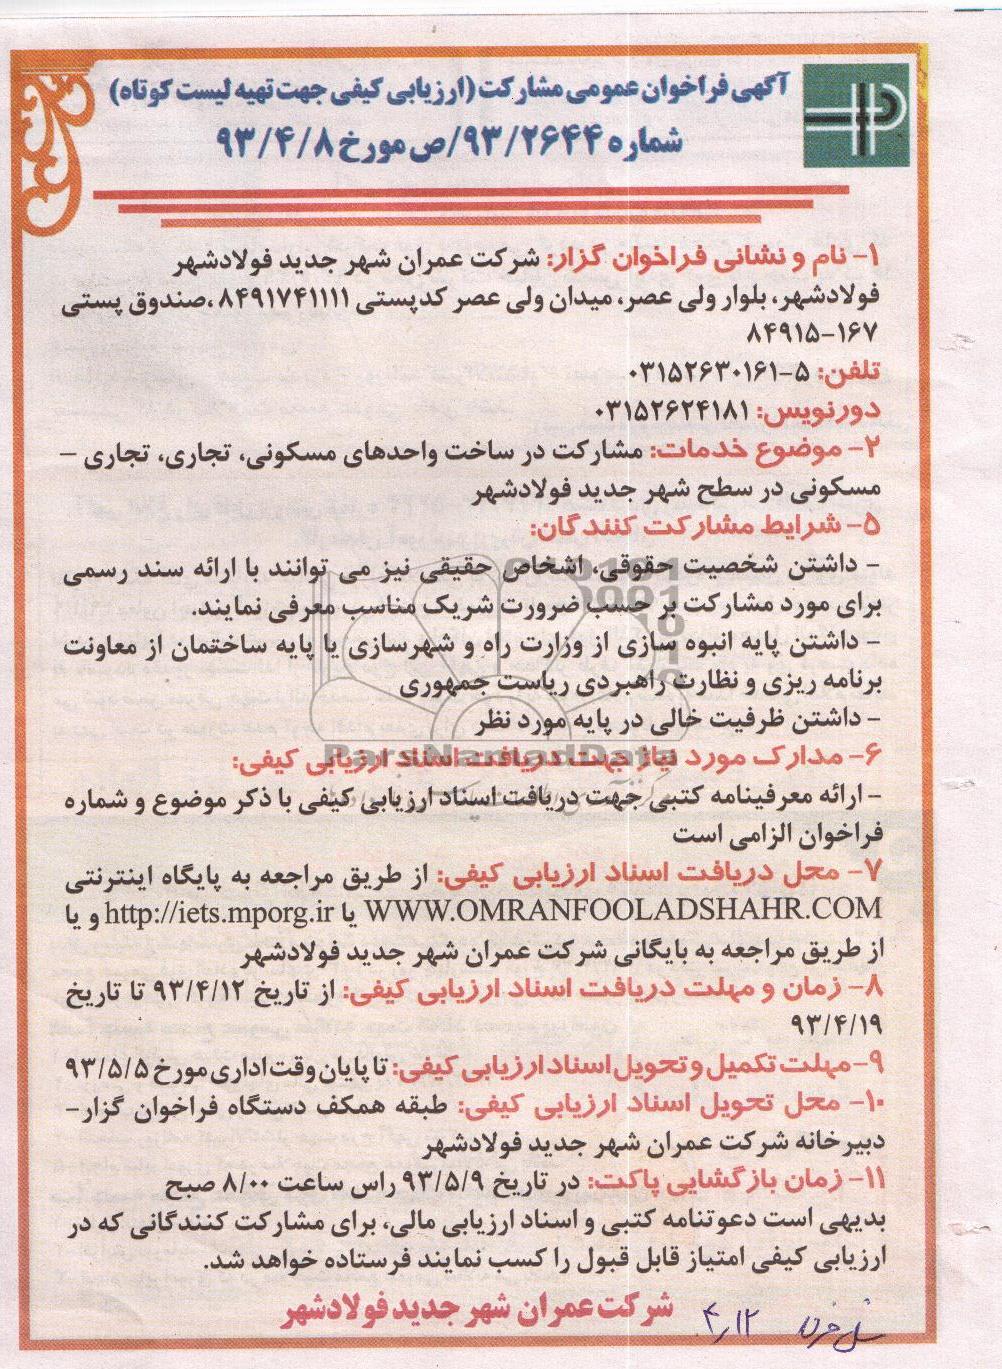 آگهی فراخوان عمومی مشارکت (ارزیابی کیفی جهت تهیه لیست کوتاه)
شماره ۹۳/۲۶۴۴/ص مورخ ۹۳/۴/۸
۱- نام و نشانی فراخوان گزار: شرکت عمران شهر جدید فولادشهر
فولادشهر، بلوار ولی عصر، میدان ولی عصر کدپستی ۸۴۹۱۷۴۱۱۱۱ ،صندوق پستی
۸۴۹۱۵-۱۶۷
تلفن: ۵-۰۳۱۵۲۶۳۰۱۶۱
دورنویس: ۰۳۱۵۲۶۲۴۱۸۱
۲- موضوع خدمات: مشارکت در ساخت واحدهای مسکونی، تجاری، تجاری –
مسکونی در سطح شهر جدید فولادشهر
۵- شرایط مشارکت کنندگان:
- داشتن شخصیت حقوقی، اشخاص حقیقی نیز می توانند با ارائه سند رسمی
برای مورد مشارکت بر حسب ضرورت شریک مناسب معرفی نمایند.
- داشتن پایه انبوه سازی از وزارت راه و شهرسازی یا پایه ساختمان از معاونت
برنامه ریزی و نظارت راهبردی ریاست جمهوری
- داشتن ظرفیت خالی در پایه مورد نظر
ParsNamadData
۶- مدارک مورد نیاز جهت دریافت اسناد ارزیابی کیفی:
- ارائه معرفینامه کتبی جهت دریافت اسناد ارزیابی کیفی با ذکر موضوع و شماره
فراخوان الزامی است
۷- محل دریافت اسناد ارزیابی کیفی: از طریق مراجعه به پایگاه اینترنتی
WWW.OMRANFOOLADSHAHR.COM یا http://iets.mporg.ir و یا
از طریق مراجعه به بایگانی شرکت عمران شهر جدید فولادشهر
۸- زمان و مهلت دریافت اسناد ارزیابی کیفی: از تاریخ ۹۳/۴/۱۲ تا تاریخ
۹۳/۴/۱۹
۹-مهلت تکمیل و تحویل اسناد ارزیابی کیفی: تا پایان وقت اداری مورخ ۹۳/۵/۵
۱۰- محل تحویل اسناد ارزیابی کیفی: طبقه همکف دستگاه فراخوان گزار-
دبیرخانه شرکت عمران شهر جدید فولادشهر
۱۱- زمان بازگشایی پاکت: در تاریخ ۹۳/۵/۹ راس ساعت ۸/۰۰ صبح
بدیهی است دعوتنامه کتبی و اسناد ارزیابی مالی، برای مشارکت کنندگانی که در
ارزیابی کیفی امتیاز قابل قبول را کسب نمایند فرستاده خواهد شد.
شرکت عمران شهر جدید فولادشهر
۴/۱۲